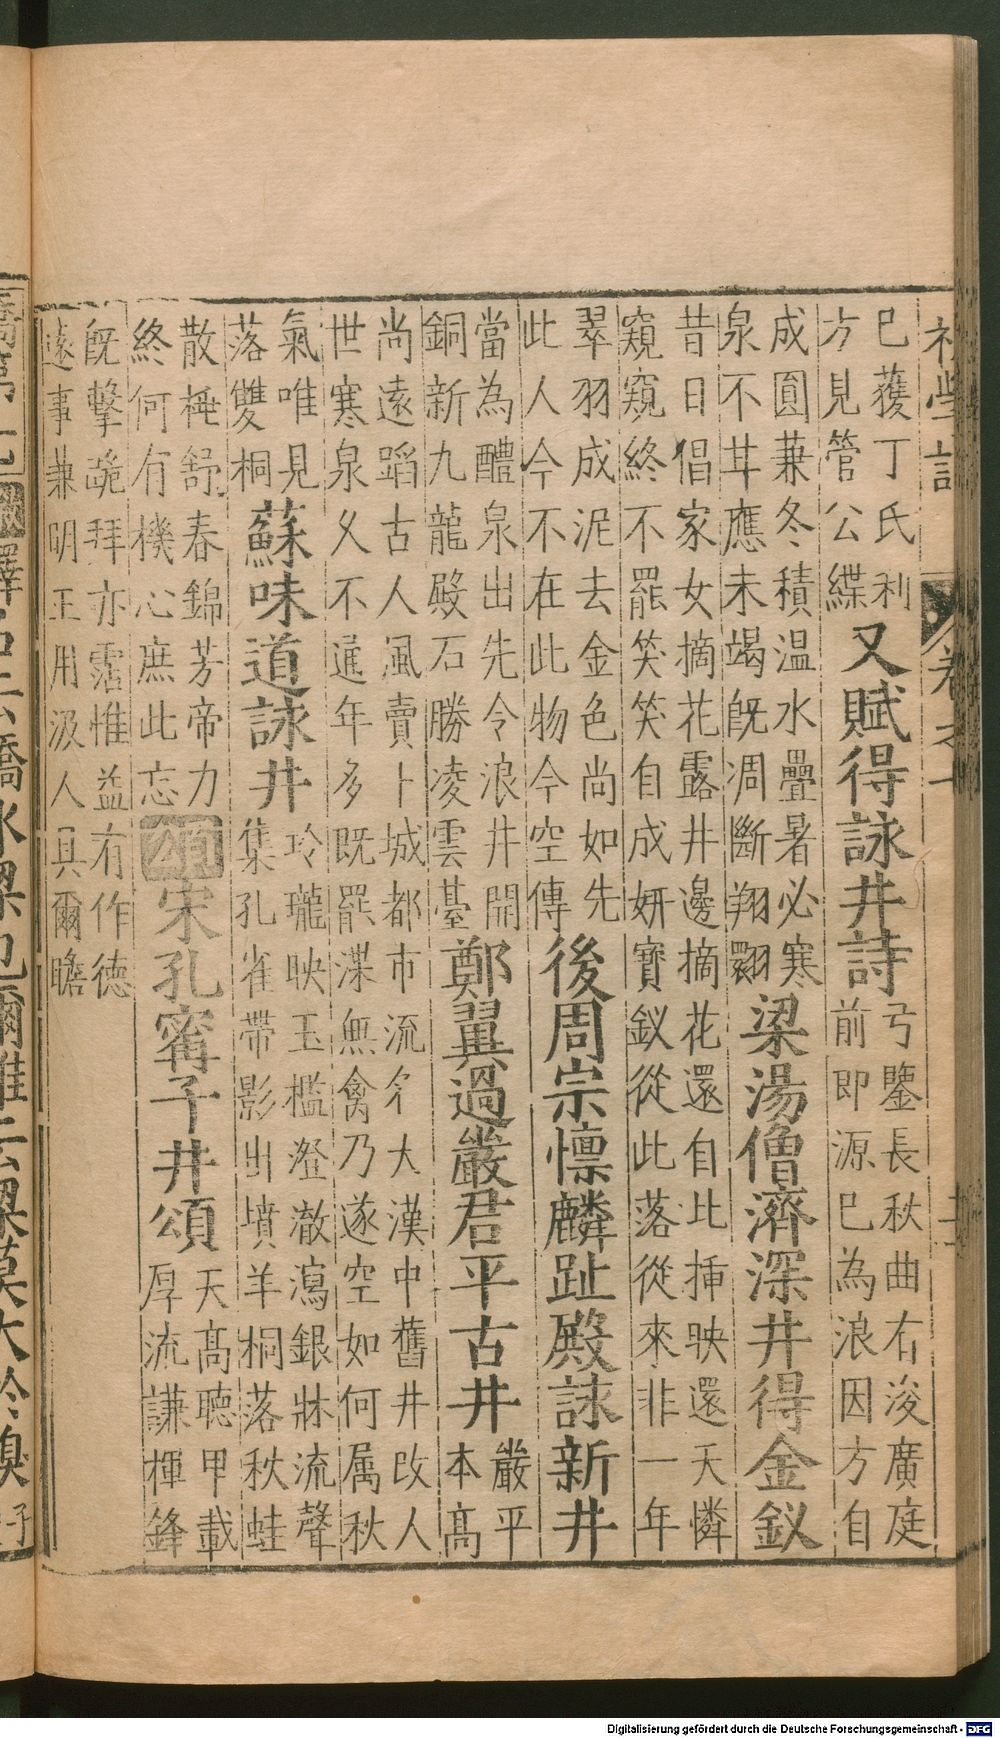 初學記
卷之七
巳獲丁氏利
方見管公緤
又賦得詠井詩
兮鑒長秋曲右浚廣庭
前即源巳為浪因方自
成圓兼冬積温水疊暑必寒
泉不甘應未竭既凋斷翔翾
梁湯僧濟深井得金釵
昔日倡家女摘花露井邊摘花還自比揷映還天憐
窺窺終不罷笑笑自成妍寳釵從此落從來非一年
翠羽成泥去金色尚如先
此人今不在此物今空傳
後周宗懍麟趾殿詠新井
當為醴泉出先令浪井開
銅新九龍殿石勝凌雲䑓
鄭翼過嚴君平古井
嚴平
本髙
尚遠蹈古人風賣卜城都市流名大漢中舊井改人
世寒泉乆不通年多既罷渫無禽乃遂空如何属秋
氣唯見
落雙桐
蘇味道詠井
玲瓏映玉檻澄澈瀉銀牀流聲
集孔雀帶影出墳羊桐落秋蛙
散梅舒春錦芳帝力
終何有機心庶此忘
頌
宋孔甯子井頌
天髙聴甲載
厚流謙楎鋒
既擊疏拜亦霑惟益有作德
逺事兼明王用汲人具爾瞻
橋第七
釋名云橋水梁也爾雅云梁莫大於湨
Digitalisierung gefördert durch die Deutsche Forschungsgemeinschaft - DFG